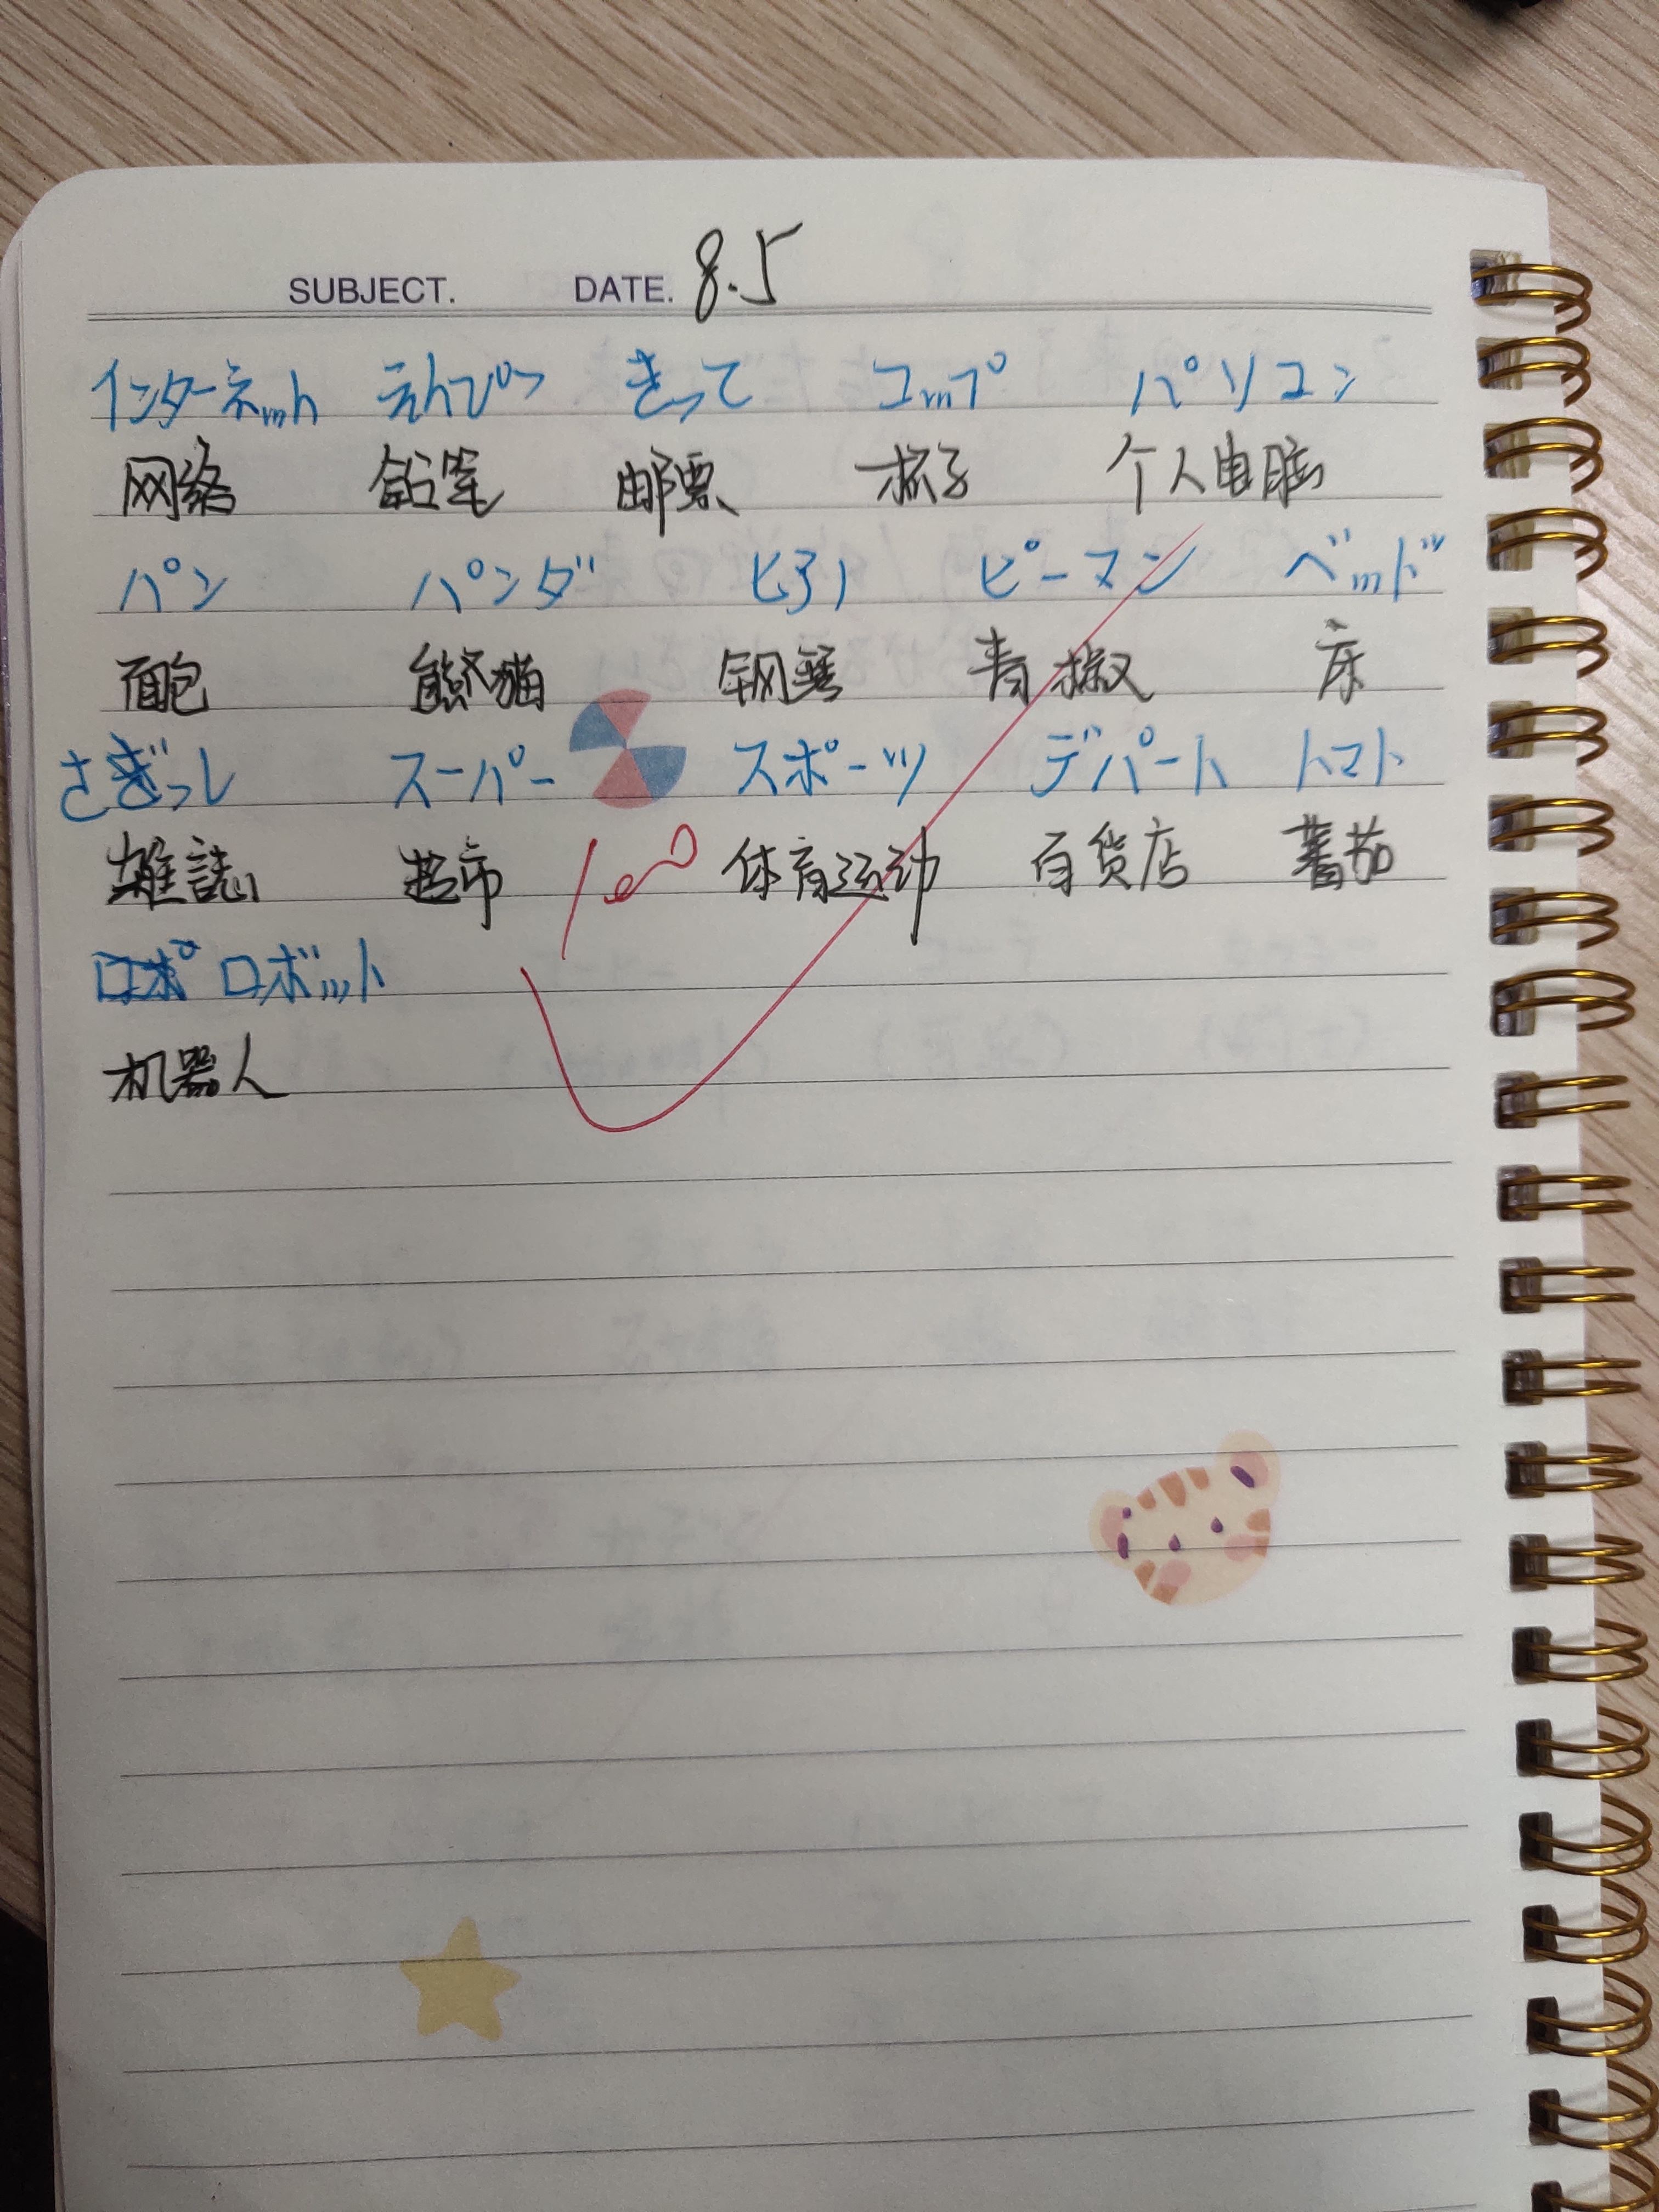 SUBJECT. DATE. 8.5
インターネット えんぴつ きって コップ パソコン
网络 铅笔 邮票 杯子 个人电脑
パン パンダ ピーマン ベッド
面包 熊猫 钢琴 青椒 床
スーパー スポーツ デパート トマト
雑誌 超市 体育运动 百货店 蕃茄
100
ロボット
机器人